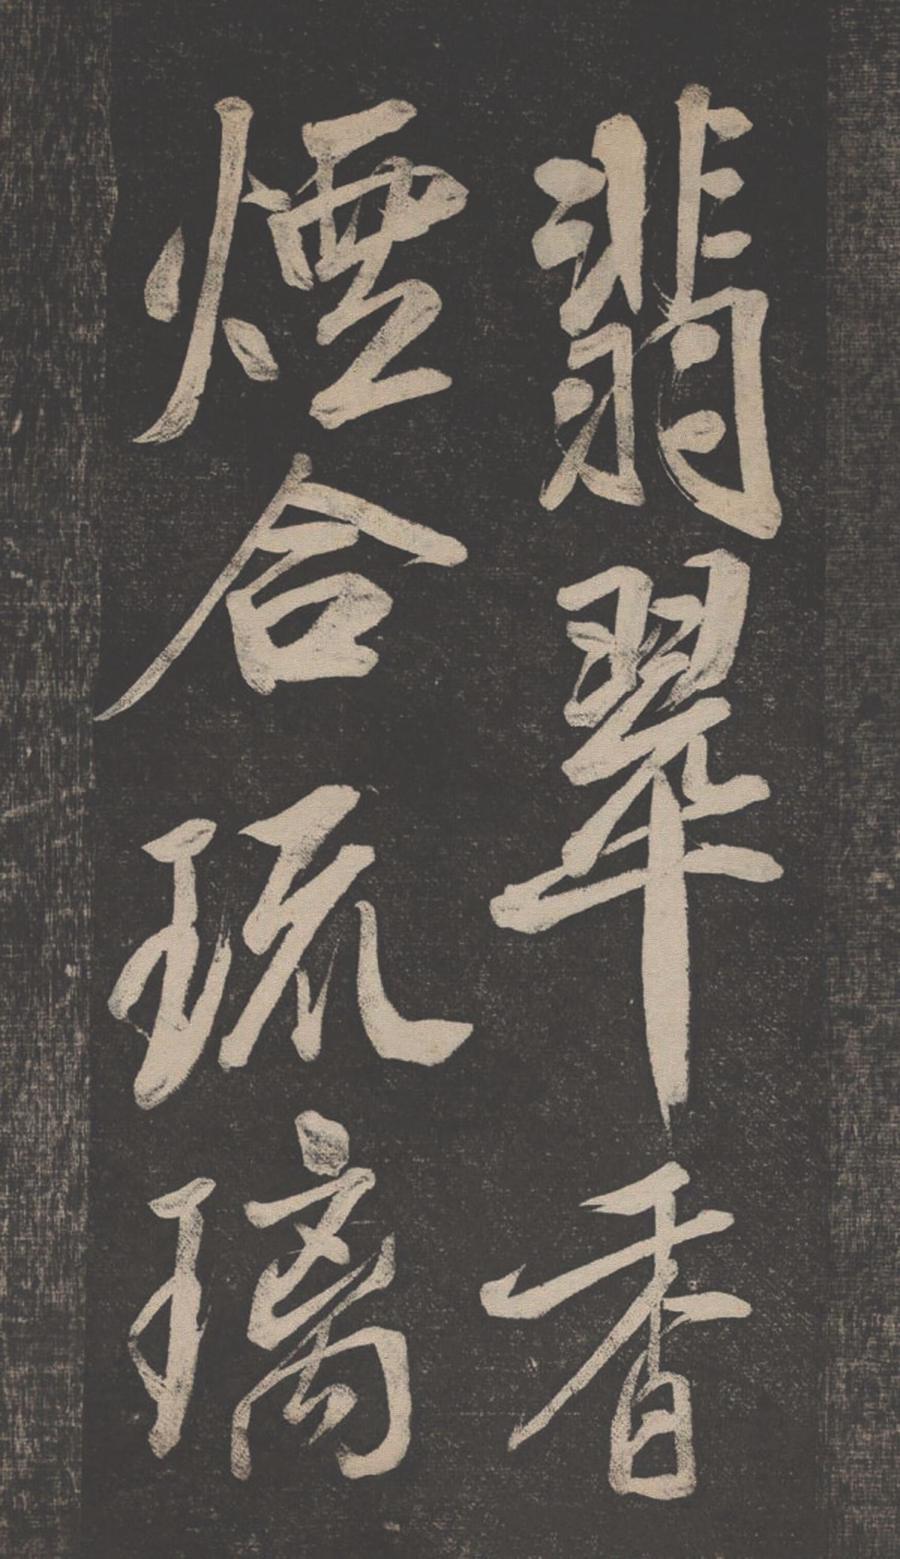 翡翠香
煙合琉璃